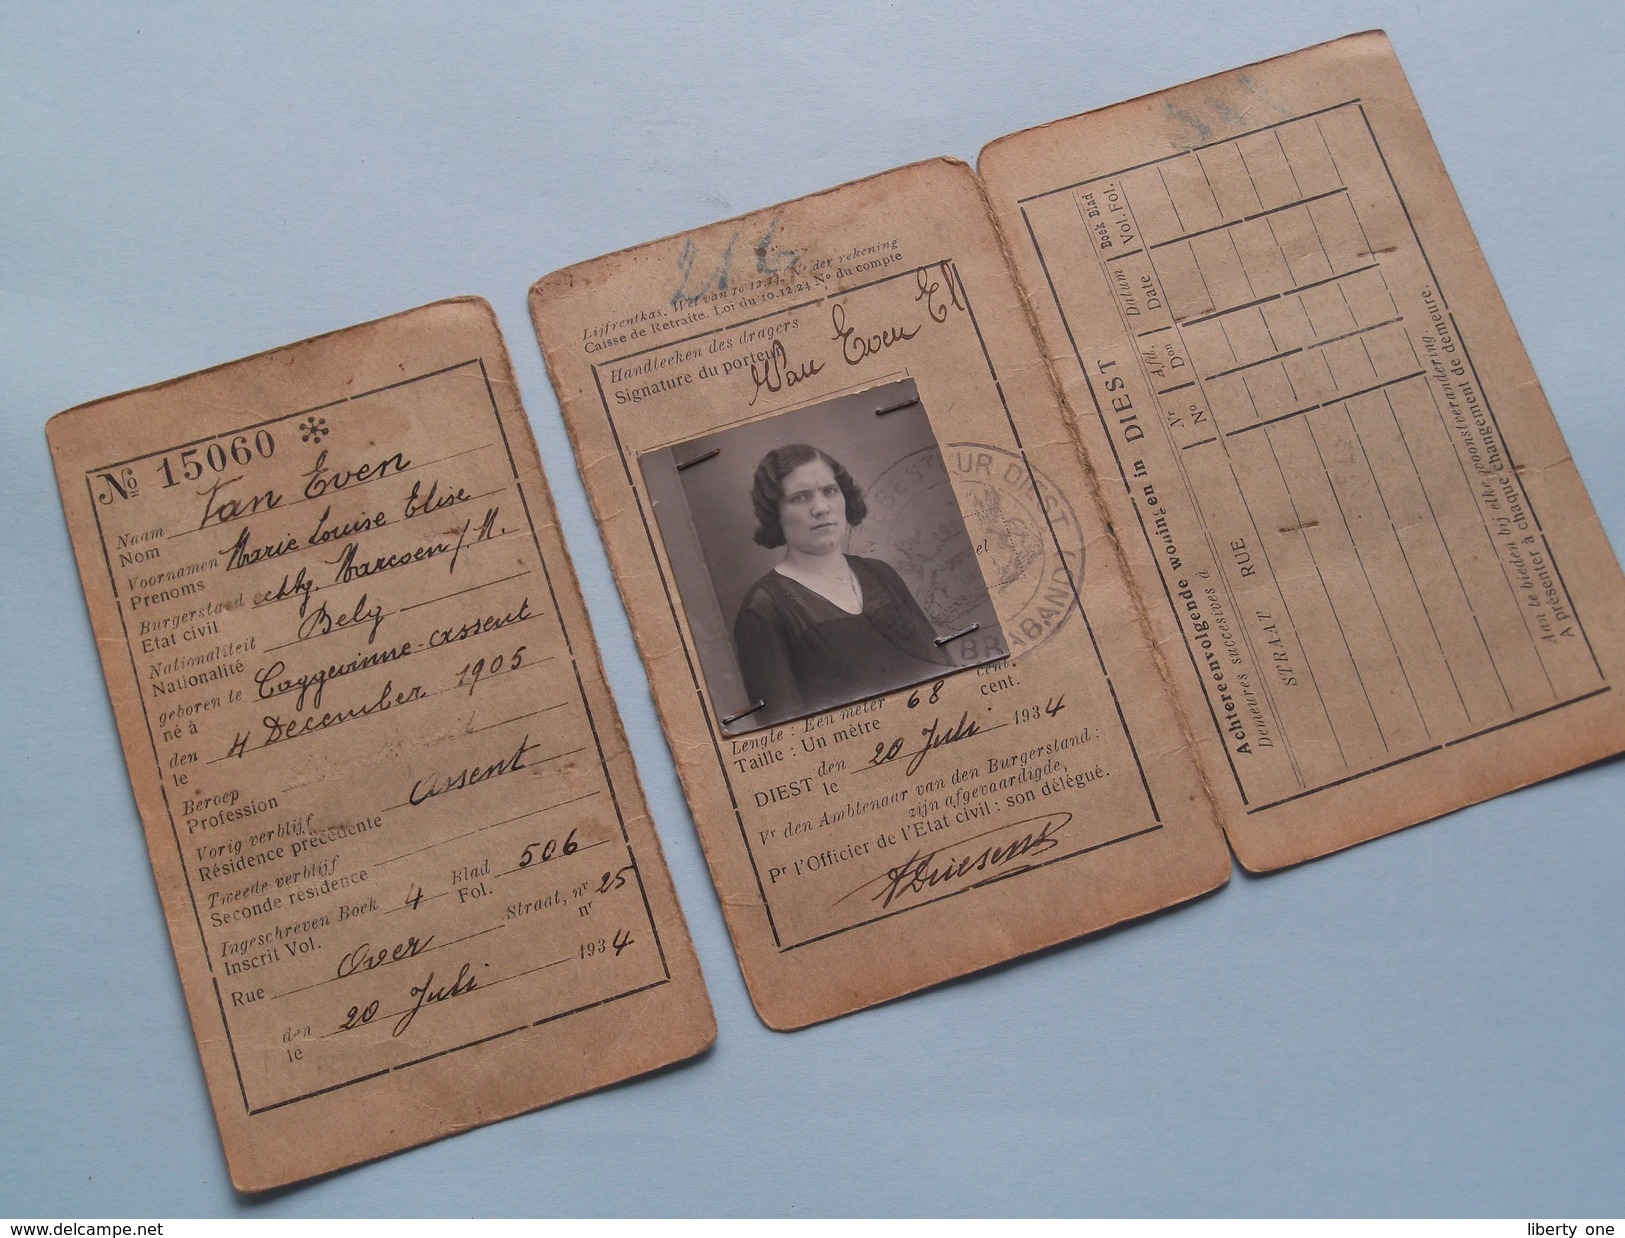 No 15060
Naam
Nom Van Even
Voornamen
Prenoms Marie Louise Elise
Burgerstand
Etat civil echtg. Marcoen / M.
Nationaliteit
Nationalité Belg
geboren te
né à Caggevinne-Assent
den
le 4 December 1905
Beroep
Profession
Vorig verblijf
Résidence précédente Assent
Tweede verblijf
Seconde résidence
Ingeschreven Boek 4 Blad 506
Inscrit Vol. Fol.
Rue Over Straat, nr 25
nr
den
le 20 Juli 1934
216
Lijfrentkas. Wet van 10.12.24. Nr der rekening
Caisse de Retraite. Loi du 10.12.24 No du compte
Handteeken des dragers
Signature du porteur
Van Even El
DIEST
BRABAND
Lengte : Een meter 68 cent.
Taille : Un mètre cent.
DIEST den
le 20 Juli 1934
Vr den Ambtenaar van den Burgerstand :
zijn afgevaardigde,
Pr l'Officier de l'Etat civil : son délégué.
Achtereenvolgende woningen in DIEST
Demeures succesives à
STRAAT RUE
Nr Afd. Datum Boek Blad
No Don Date Vol. Fol.
Aan te bieden bij elke woonstverandering.
A présenter à chaque changement de demeure.
www.delcampe.net
liberty_one